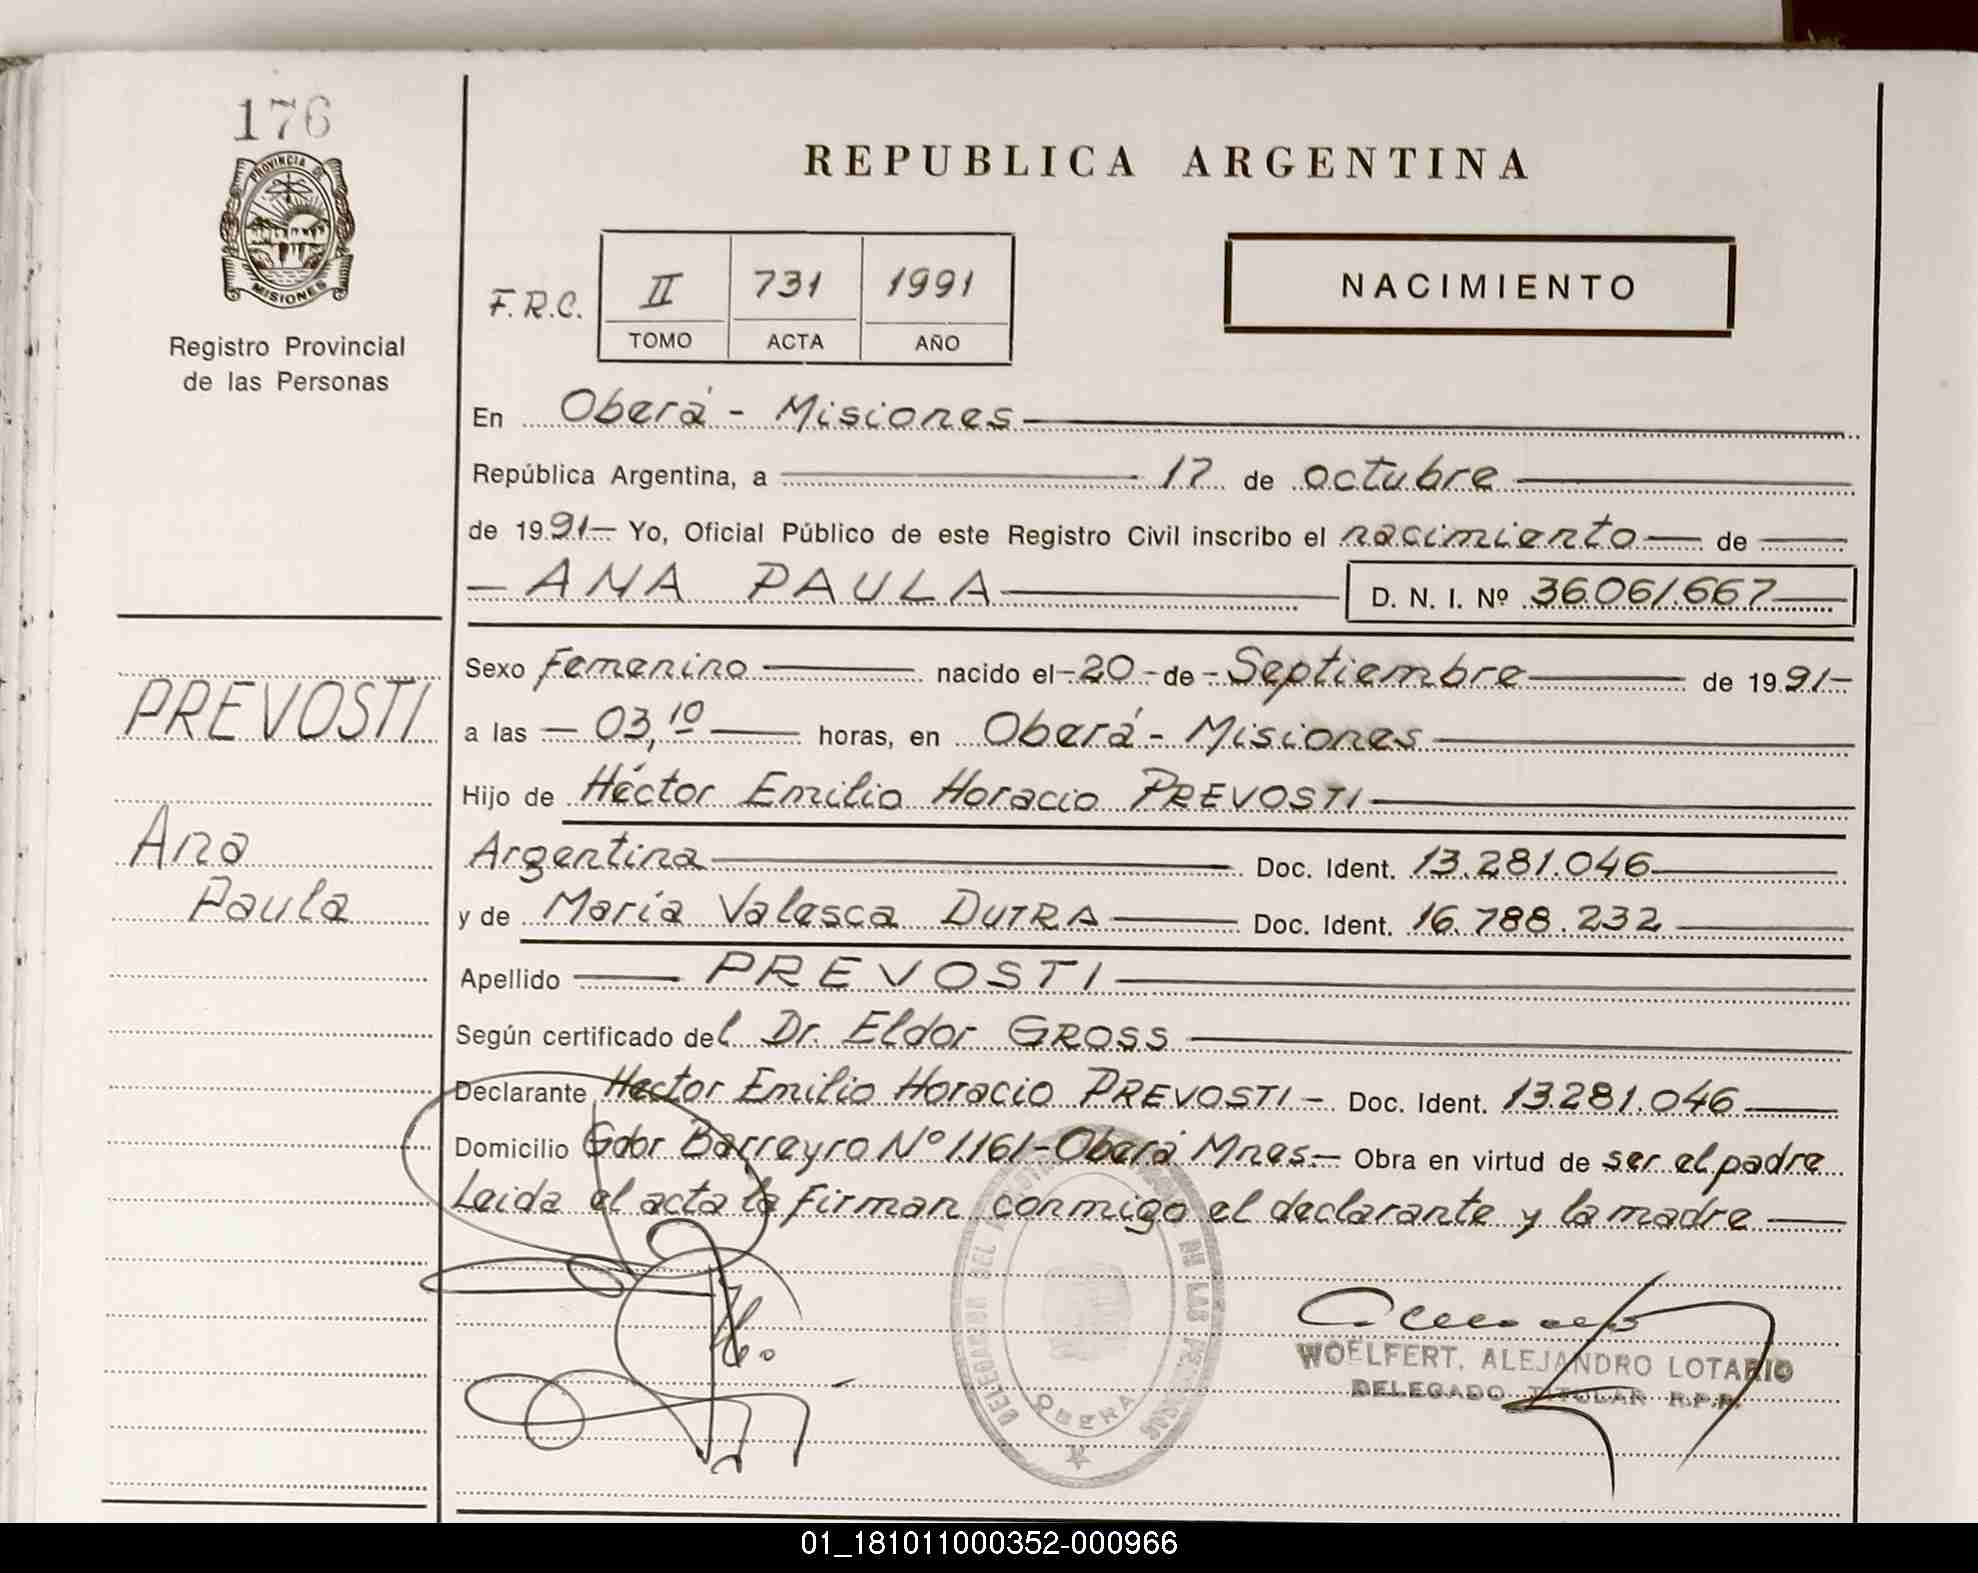 176
PROVINCIA DE
MISIONES
Registro Provincial
de las Personas
REPUBLICA ARGENTINA
F.R.C.
II 731 1991
TOMO ACTA AÑO
NACIMIENTO
En Oberá - Misiones
República Argentina, a 17 de octubre
de 1991- Yo, Oficial Público de este Registro Civil inscribo el nacimiento de
- ANA PAULA D. N. I. Nº 36.061.667
Sexo Femenino nacido el -20- de - Septiembre de 1991-
a las - 03,10 horas, en Oberá - Misiones
Hijo de Héctor Emilio Horacio PREVOSTI
Argentina Doc. Ident. 13.281.046
y de María Valesca DUTRA Doc. Ident. 16.788.232
Apellido PREVOSTI
Según certificado del Dr. Eldor GROSS
Declarante Hector Emilio Horacio PREVOSTI - Doc. Ident. 13.281.046
Domicilio Gdor Barreyro Nº 1.161 - Oberá Mnes. - Obra en virtud de ser el padre
Leida el acta la firman conmigo el declarante y la madre
PREVOSTI
Ana
Paula
DELEGACION DEL REGISTRO PROVINCIAL DE LAS PERSONAS
OBERA
WOELFERT, ALEJANDRO LOTARIO
DELEGADO TITULAR R.P.P.
01_181011000352-000966